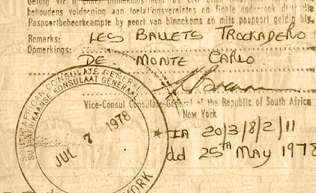 behoudens voldoening aan toelatingsvereistes en finale onderzoek deur die
Paspoortbeheerkampte by poort van binnekoms en mits paspoort geldig bly.
Remarks: LES BALLETS TROCKADERO
Opmerkings: DE MONTE CARLO
Vice-Consul Consulate-General of the Republic of South Africa
New York
SOUTH AFRICAN CONSULATE GENERAL
SUID-AFRIKAANSE KONSULAAT GENERAAL
JUL 7 1978
YORK
20/3/8/2/11
dd 25th MAY 1978